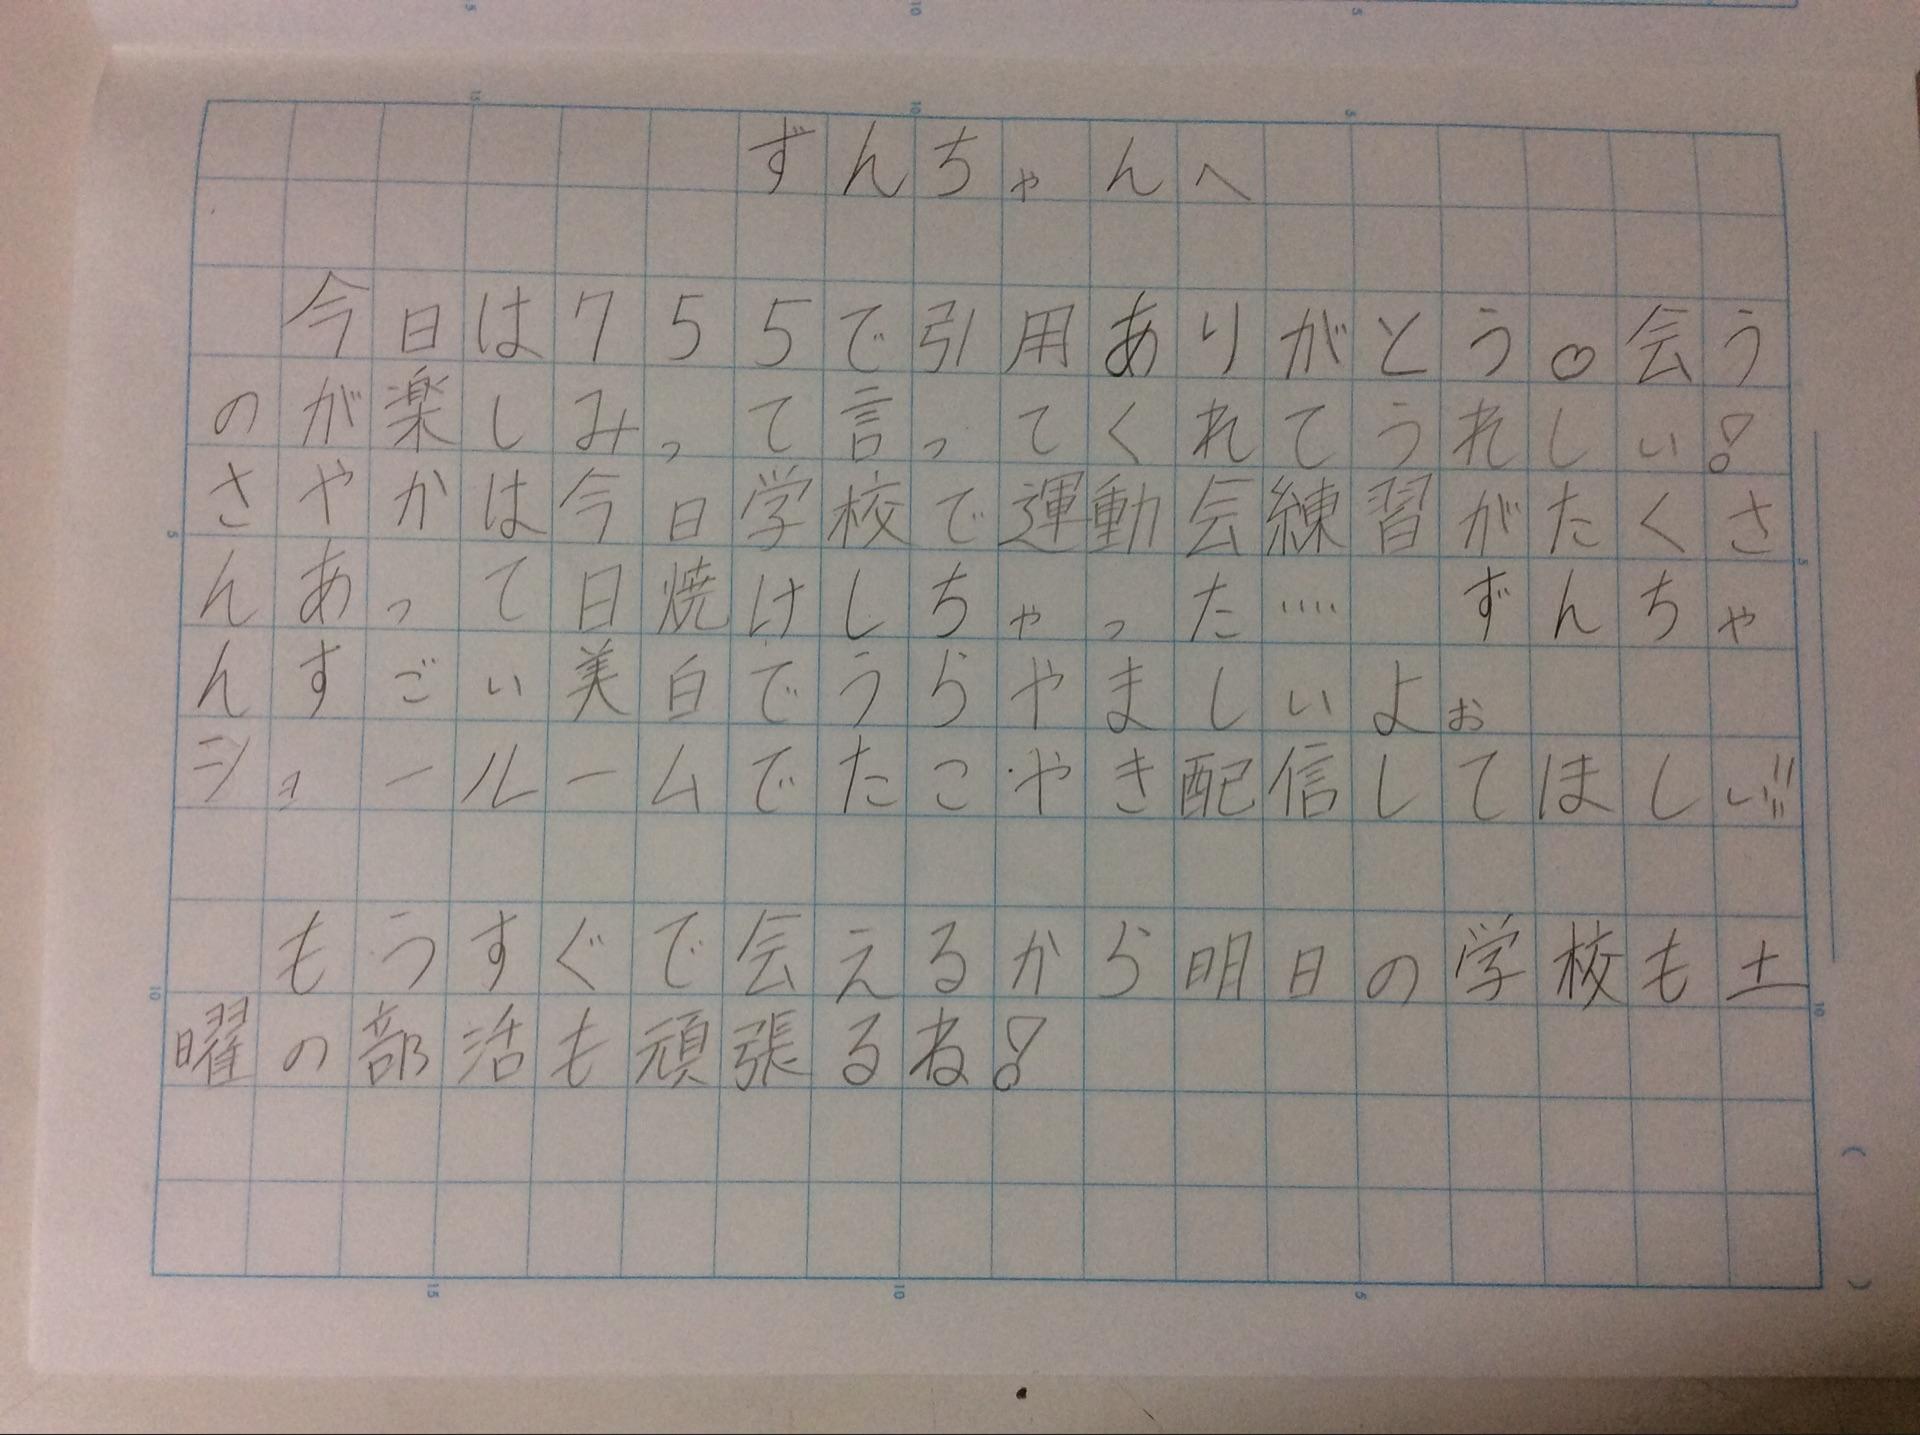 ずんちゃんへ
今日は755で引用ありがとう♡会う
のが楽しみって言ってくれてうれしい!
さやかは今日学校で運動会練習がたくさ
んあって日焼けしちゃった…. ずんちゃ
んすごい美白でうらやましいよぉ
ショールームでたこやき配信してほしい!!
もうすぐで会えるから明日の学校も土
曜の部活も頑張るね!